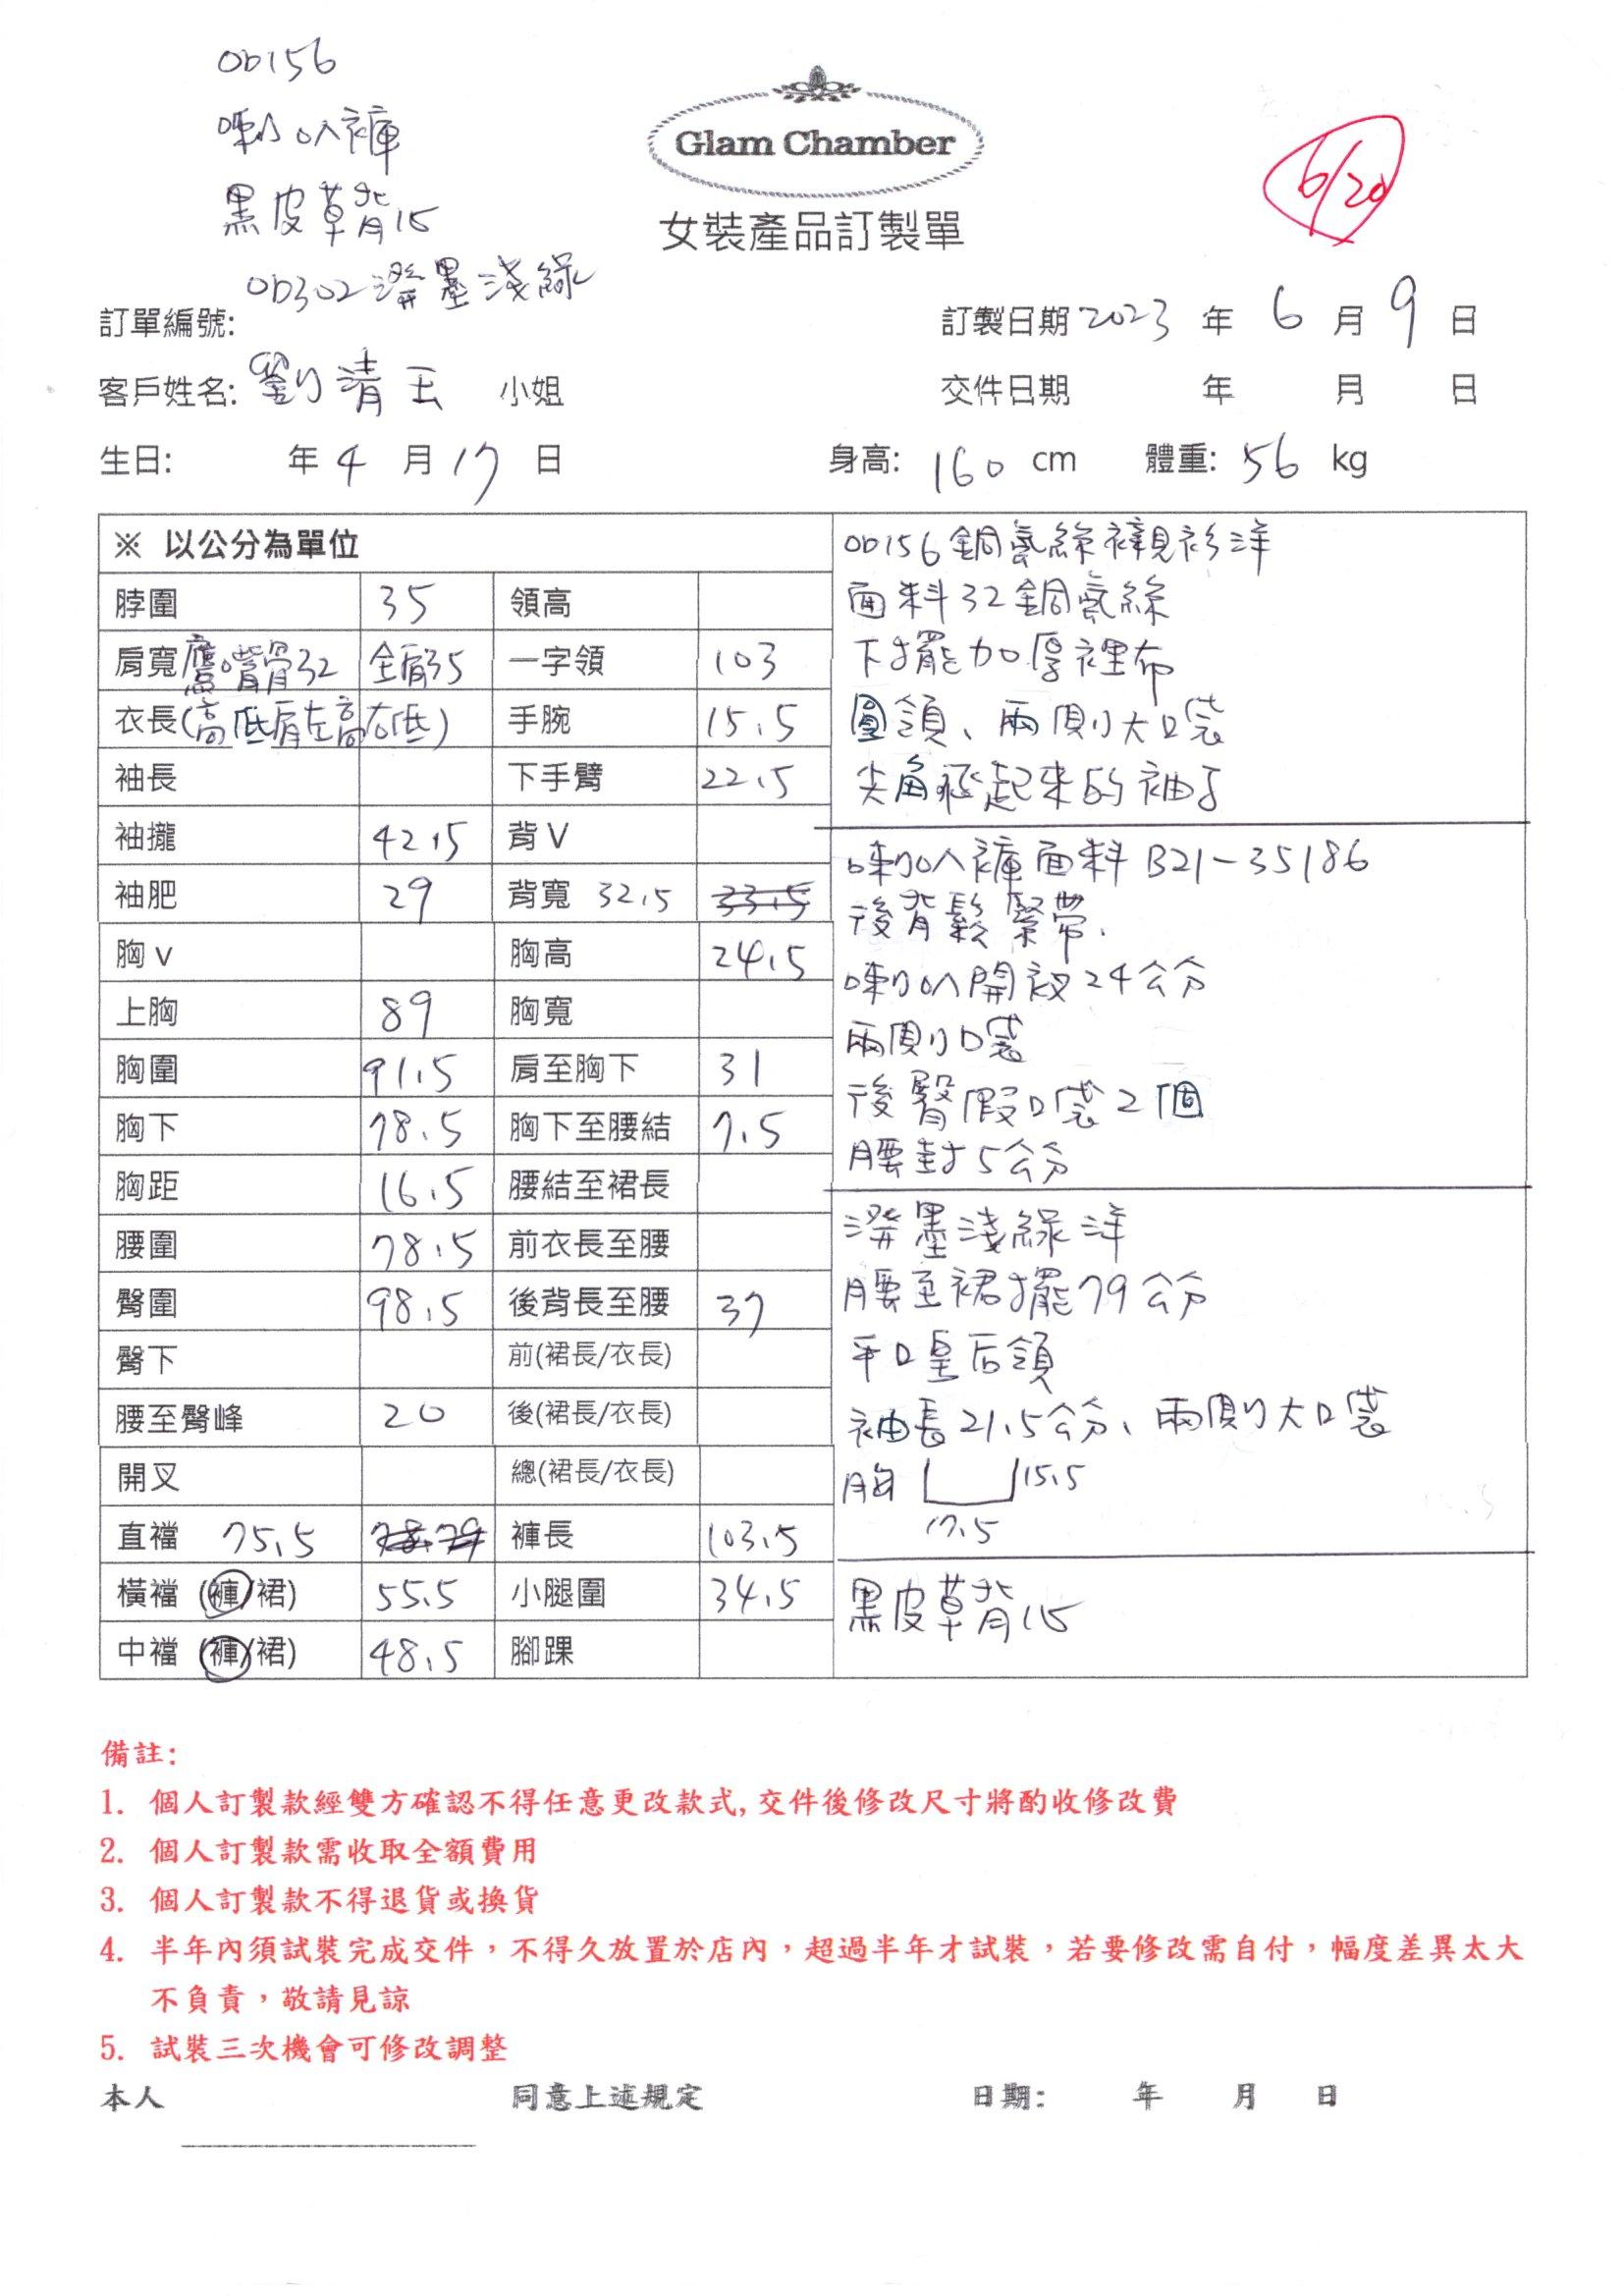 ob156
喇叭褲
黑皮草背15
ob302 潑墨淺綠
Glam Chamber
女裝產品訂製單
6/20
訂單編號:
訂製日期 2023 年 6 月 9 日
客戶姓名: 劉清玉 小姐
交件日期 年 月 日
生日: 年 4 月 17 日
身高: 160 cm 體重: 56 kg
※ 以公分為單位
脖圍 35 領高
肩寬 鷹嘴骨32 全肩35 一字領 103
衣長(高低肩左高右低) 手腕 15.5
袖長 下手臂 22.5
袖攏 42.5 背V
袖肥 29 背寬 32.5 33.5
胸v 胸高 24.5
上胸 89 胸寬
胸圍 91.5 肩至胸下 31
胸下 78.5 胸下至腰結 7.5
胸距 16.5 腰結至裙長
腰圍 78.5 前衣長至腰
臀圍 98.5 後背長至腰 37
臀下 前(裙長/衣長)
腰至臀峰 20 後(裙長/衣長)
開叉 總(裙長/衣長)
直襠 75.5 褲長 103.5
橫襠 (褲/裙) 55.5 小腿圍 34.5
中襠 (褲/裙) 48.5 腳踝
ob156銅氨絲襯衫洋
面料32銅氨絲
下擺加厚裡布
圓領、兩側大口袋
尖角飛起來的袖子
喇叭褲面料 B21-35186
後背鬆緊帶.
喇叭開衩24公分
兩側口袋
後臀假口袋2個
腰封5公分
潑墨淺綠洋
腰至裙擺79公分
平口皇后領
袖長21.5公分、兩側大口袋
胸 15.5
17.5
黑皮草背15
備註:
1. 個人訂製款經雙方確認不得任意更改款式, 交件後修改尺寸將酌收修改費
2. 個人訂製款需收取全額費用
3. 個人訂製款不得退貨或換貨
4. 半年內須試裝完成交件，不得久放置於店內，超過半年才試裝，若要修改需自付，幅度差異太大
不負責，敬請見諒
5. 試裝三次機會可修改調整
本人 同意上述規定 日期: 年 月 日